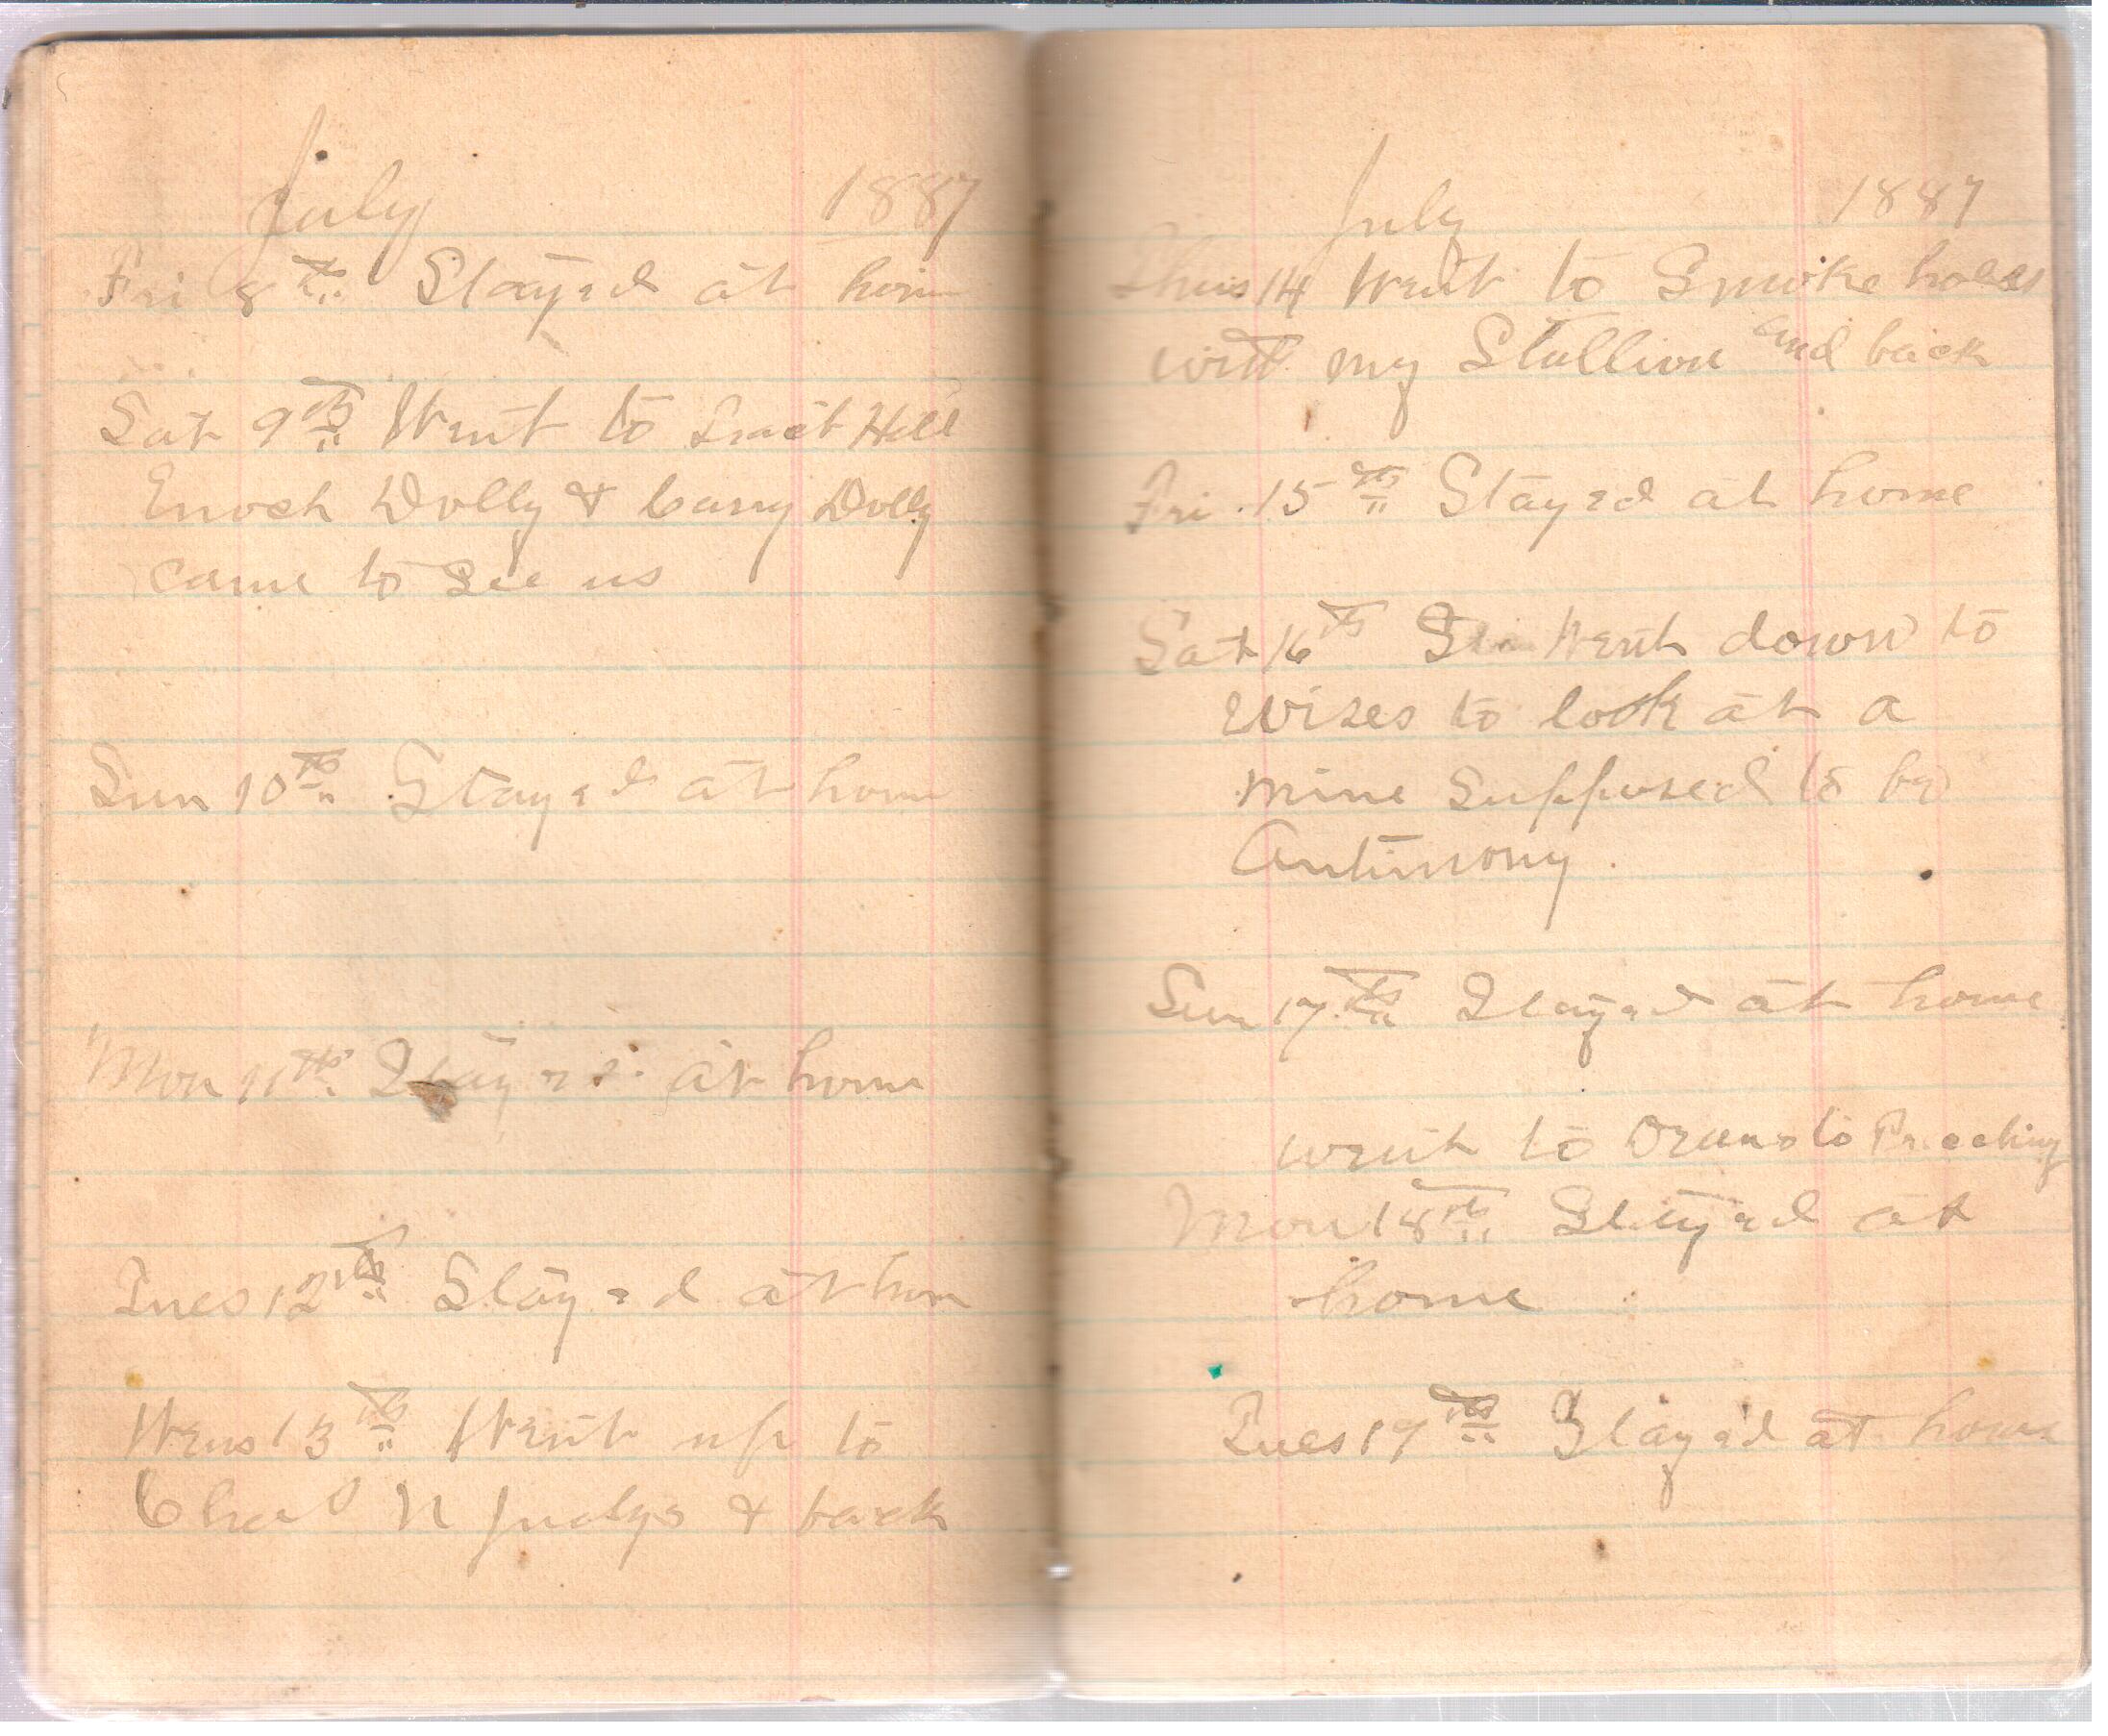 July 1887
Fri 8th Stayed at home
Sat 9th Went to Hill
Enoch Dolly & Carry Dolly
came to see us
Sun 10th Stayed at home
Mon 11th Stayed at home
Tues 12th Stayed at home
Wens 13th Went up to
Chas N Judys & back
July 1887
Thurs 14 Went to Smoke holes
with my Stallion and back
Fri 15th Stayed at home
Sat 16th Went down to
Wises to look at a
mine Supposed to be
Antimony.
Sun 17th Stayed at home
went to to Preching
Mon 18th Stayed at
home
Tues 19th Stayed at home